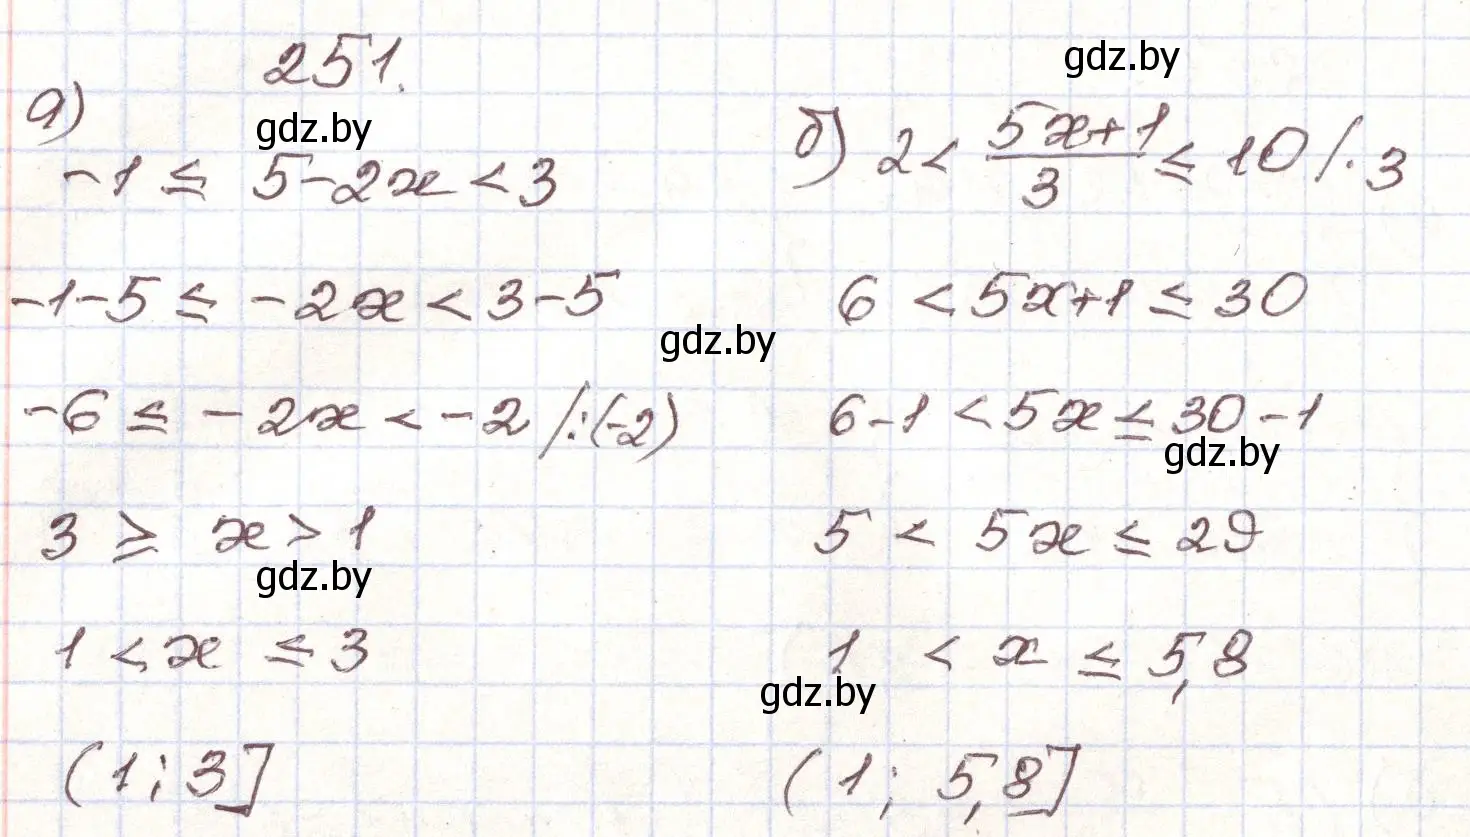 251.
gdz.by
а)
-1 ≤ 5-2x < 3
-1-5 ≤ -2x < 3-5
-6 ≤ -2x < -2 /:(-2)
3 ≥ x > 1
gdz.by
1 < x ≤ 3
(1; 3]
gdz.by
gdz.by
б) 2 < (5x+1)/3 ≤ 10 /· 3
6 < 5x+1 ≤ 30
6-1 < 5x ≤ 30-1
gdz.by
5 < 5x ≤ 29
1 < x ≤ 5,8
gdz.by
(1; 5,8]